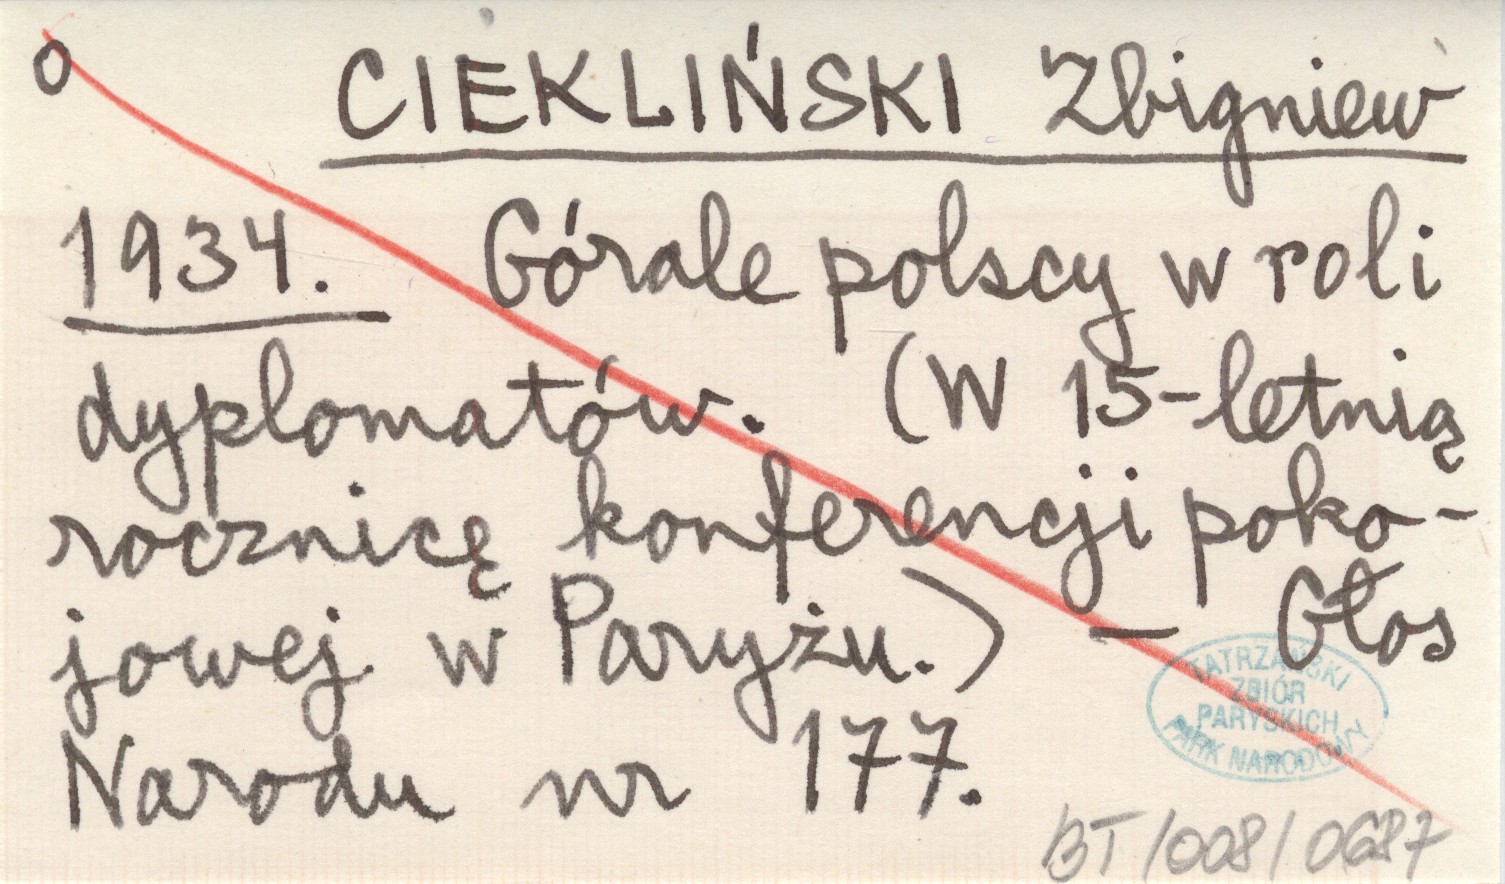 o CIEKLIŃSKI Zbigniew
1934. Górale polscy w roli
dyplomatów. (W 15-letnią
rocznicę konferencji poko-
jowej w Paryżu.) — Głos
Narodu nr 177.
TATRZAŃSKI
ZBIÓR
PARYSKICH
PARK NARODOWY
BT/008/0687